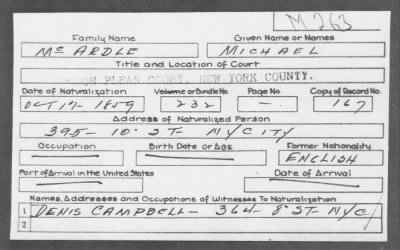 M263
Family Name Given Name or Names
Mc ARDLE MICHAEL
Title and Location of Court
PLEAS COURT, NEW YORK COUNTY.
Date of Naturalization Volume or Bundle No. Page No. Copy of Record No.
OCT 17- 1859 232 — 167
Address of Naturalized Person
395- 10- ST- NYCITY
Occupation Birth Date or Age Former Nationality
ENGLISH
Port of Arrival in the United States Date of Arrival
Names, Addresses and Occupations of Witnesses To Naturalization
1 DENIS CAMPBELL- 364- 8- ST- NYC
2